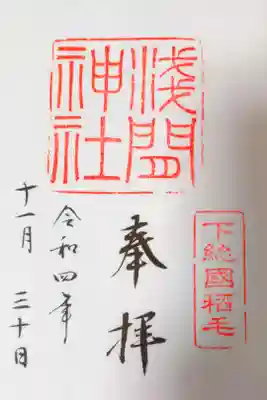 浅間
神社
下総國稲毛
奉拝
令和四年
十一月三十日